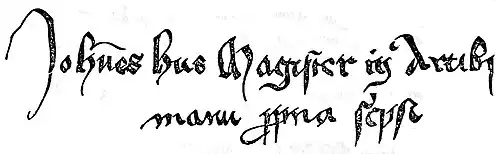 Joh̅nes hus Magister in Artib⁹
manu ꝓpria sc̅psi